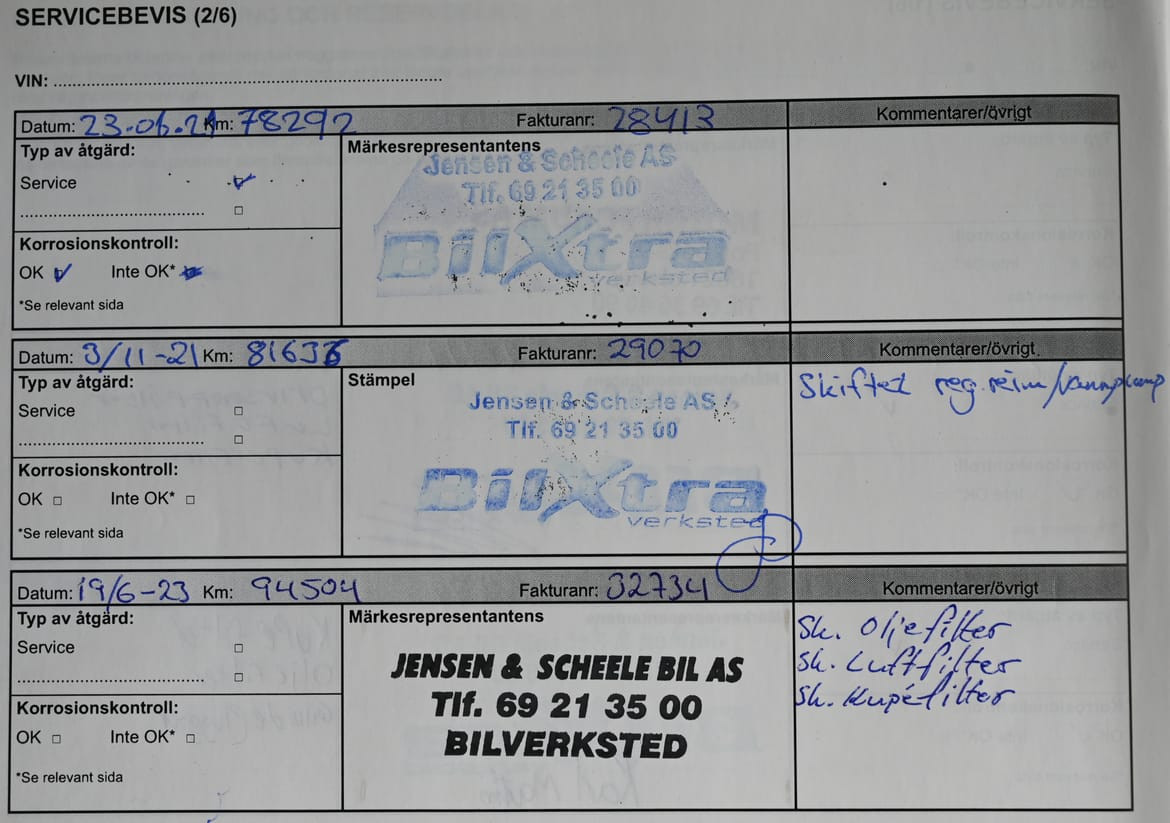 SERVICEBEVIS (2/6)
VIN:
Datum: 23-06-21 Km: 78292 Fakturanr: 28413 Kommentarer/övrigt
Typ av åtgärd:
Service
Korrosionskontroll:
OK Inte OK*
*Se relevant sida
Märkesrepresentantens
Jensen & Scheele AS
Tlf. 69 21 35 00
BilXtra
verksted
Datum: 3/11-21 Km: 81636 Fakturanr: 29070 Kommentarer/övrigt
Typ av åtgärd:
Service
Korrosionskontroll:
OK Inte OK*
*Se relevant sida
Stämpel
Jensen & Scheele AS
Tlf. 69 21 35 00
BilXtra
verksted
Skiftet reg.reim/vannpump
Datum: 19/6-23 Km: 94504 Fakturanr: 32734 Kommentarer/övrigt
Typ av åtgärd:
Service
Korrosionskontroll:
OK Inte OK*
*Se relevant sida
Märkesrepresentantens
JENSEN & SCHEELE BIL AS
Tlf. 69 21 35 00
BILVERKSTED
Sk. Oljefilter
Sk. Luftfilter
Sk. Kupéfilter